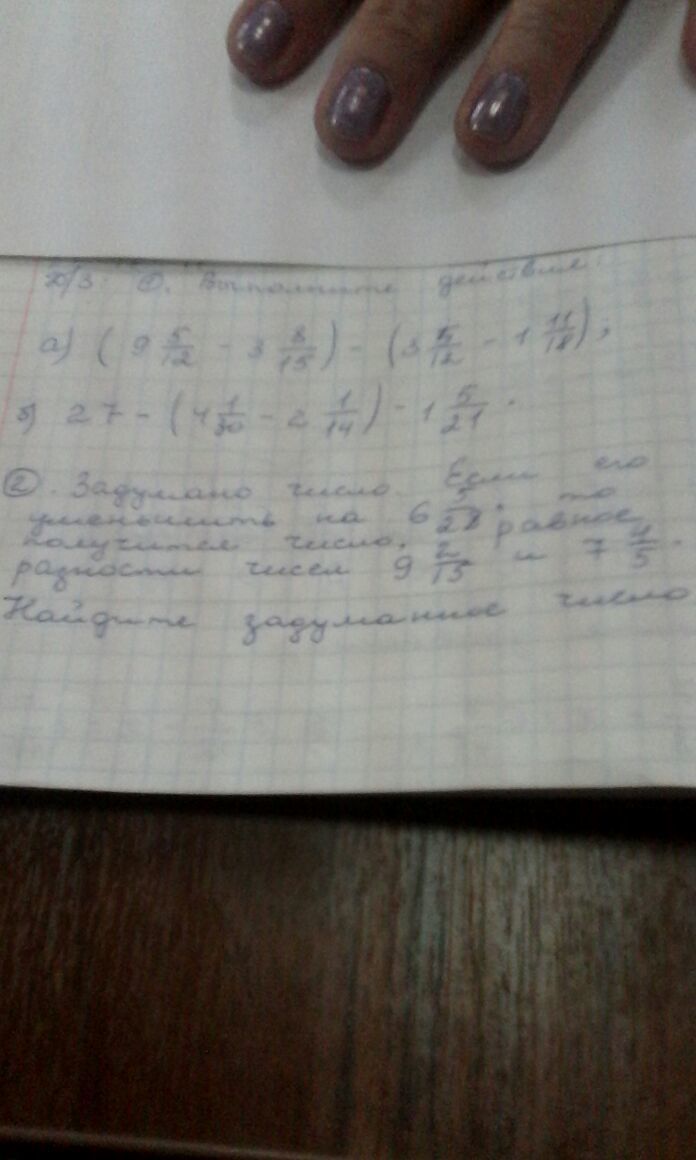 Д/З. ①. Выполните действия:
а) (9 5/12 - 3 8/15) - (3 5/12 - 1 11/18);
б) 27 - (4 1/30 - 2 1/14) - 1 5/21.
②. Задумано число. Если его
уменьшить на 6 то
получится число, равное
разности чисел 9 2/15 и 7 4/5.
Найдите задуманное число